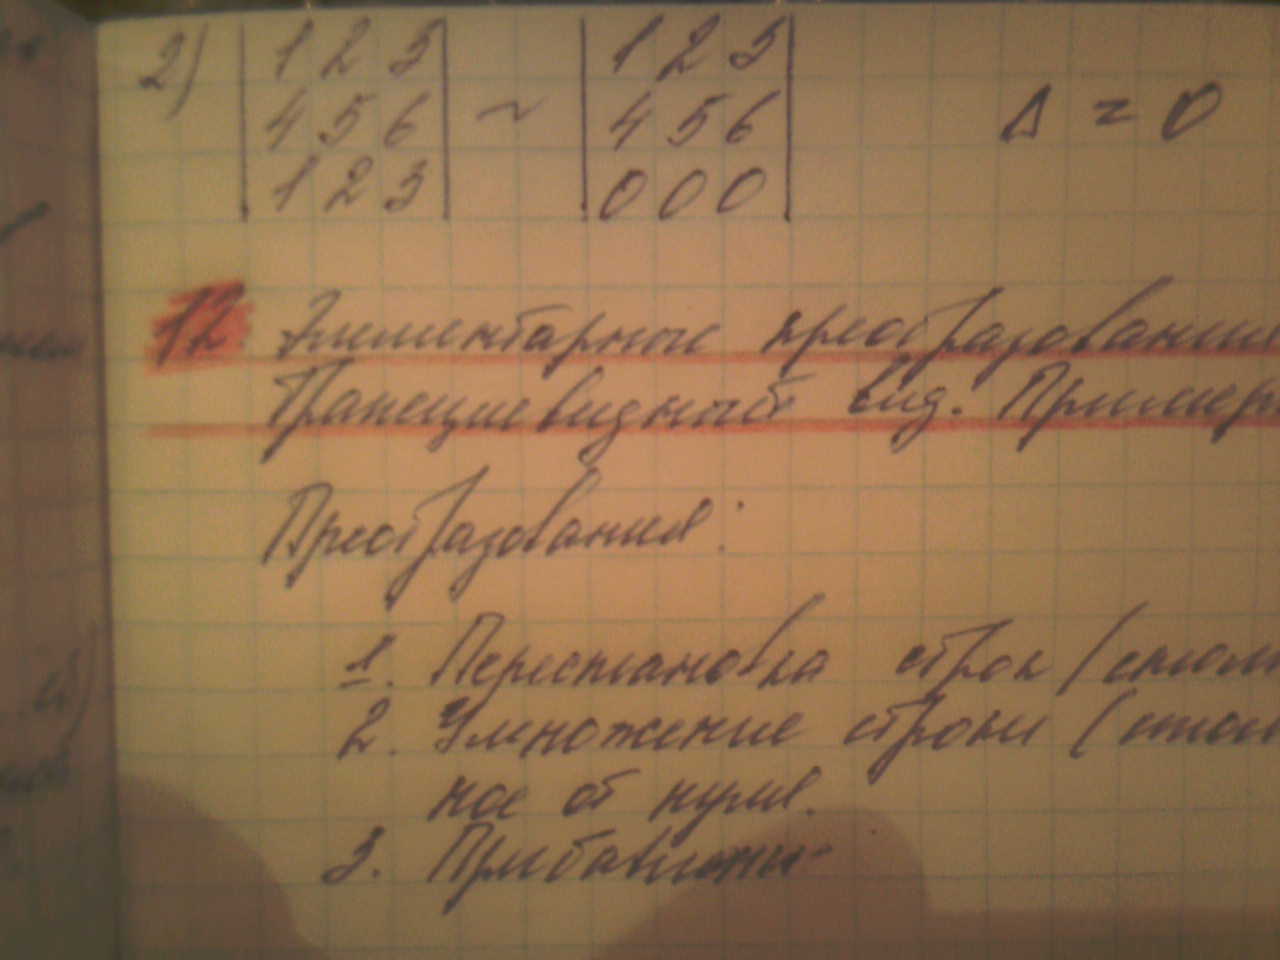 2) | 1 2 3 | ~ | 1 2 3 |
| 4 5 6 | | 4 5 6 | Δ = 0
| 1 2 3 | | 0 0 0 |
12 Элементарные преобразования
Трапециевидный вид. Пример
Преобразования:
1. Перестановка строк (столб
2. Умножение строки (стол
ное от нуля.
3. Прибавлени